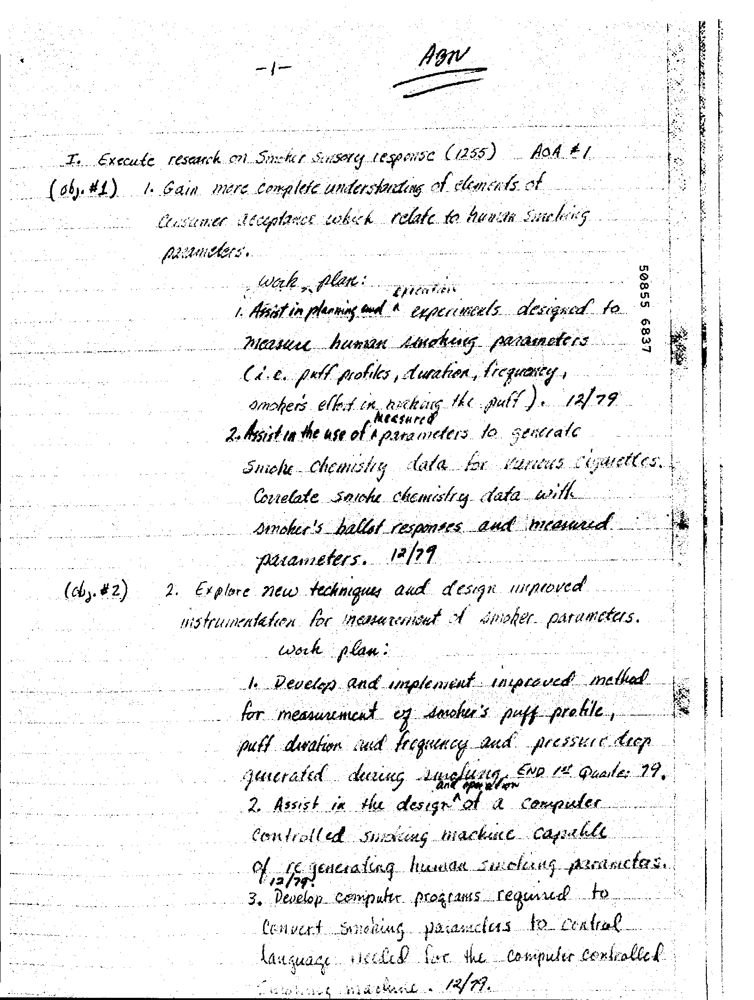 -1-
I. Execute research on Smoker Sensory response (1255) AOA #1
(obj. #1) 1. Gain more complete understanding of elements of
consumer acceptance which relate to human smoking
parameters.
work plan:
execution
1. Assist in planning and ^ experiments designed to
measure human smoking parameters
(i.e. puff profiles, duration, frequency,
smoker's effort in making the puff). 12/79
Measured
2. Assist in the use of ^ parameters to generate
smoke chemistry data for various cigarettes.
Correlate smoke chemistry data with
smoker's ballot responses and measured
parameters. 12/79
(obj. #2) 2. Explore new techniques and design improved
instrumentation for measurement of smoker parameters.
work plan:
1. Develop and implement improved method
for measurement of smoker's puff profile,
puff duration and frequency and pressure drop
generated during smoking. END 1st Quarter 79.
and operation
2. Assist in the design ^ of a computer
controlled smoking machine capable
of regenerating human smoking parameters.
12/79.
3. Develop computer programs required to
convert smoking parameters to control
language needed for the computer controlled
smoking machine. 12/79.
50855 6837